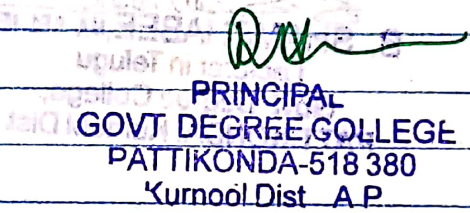 PRINCIPAL
GOVT DEGREE,GOLLEGE
PATTIKONDA-518 380
Kurnool Dist A P